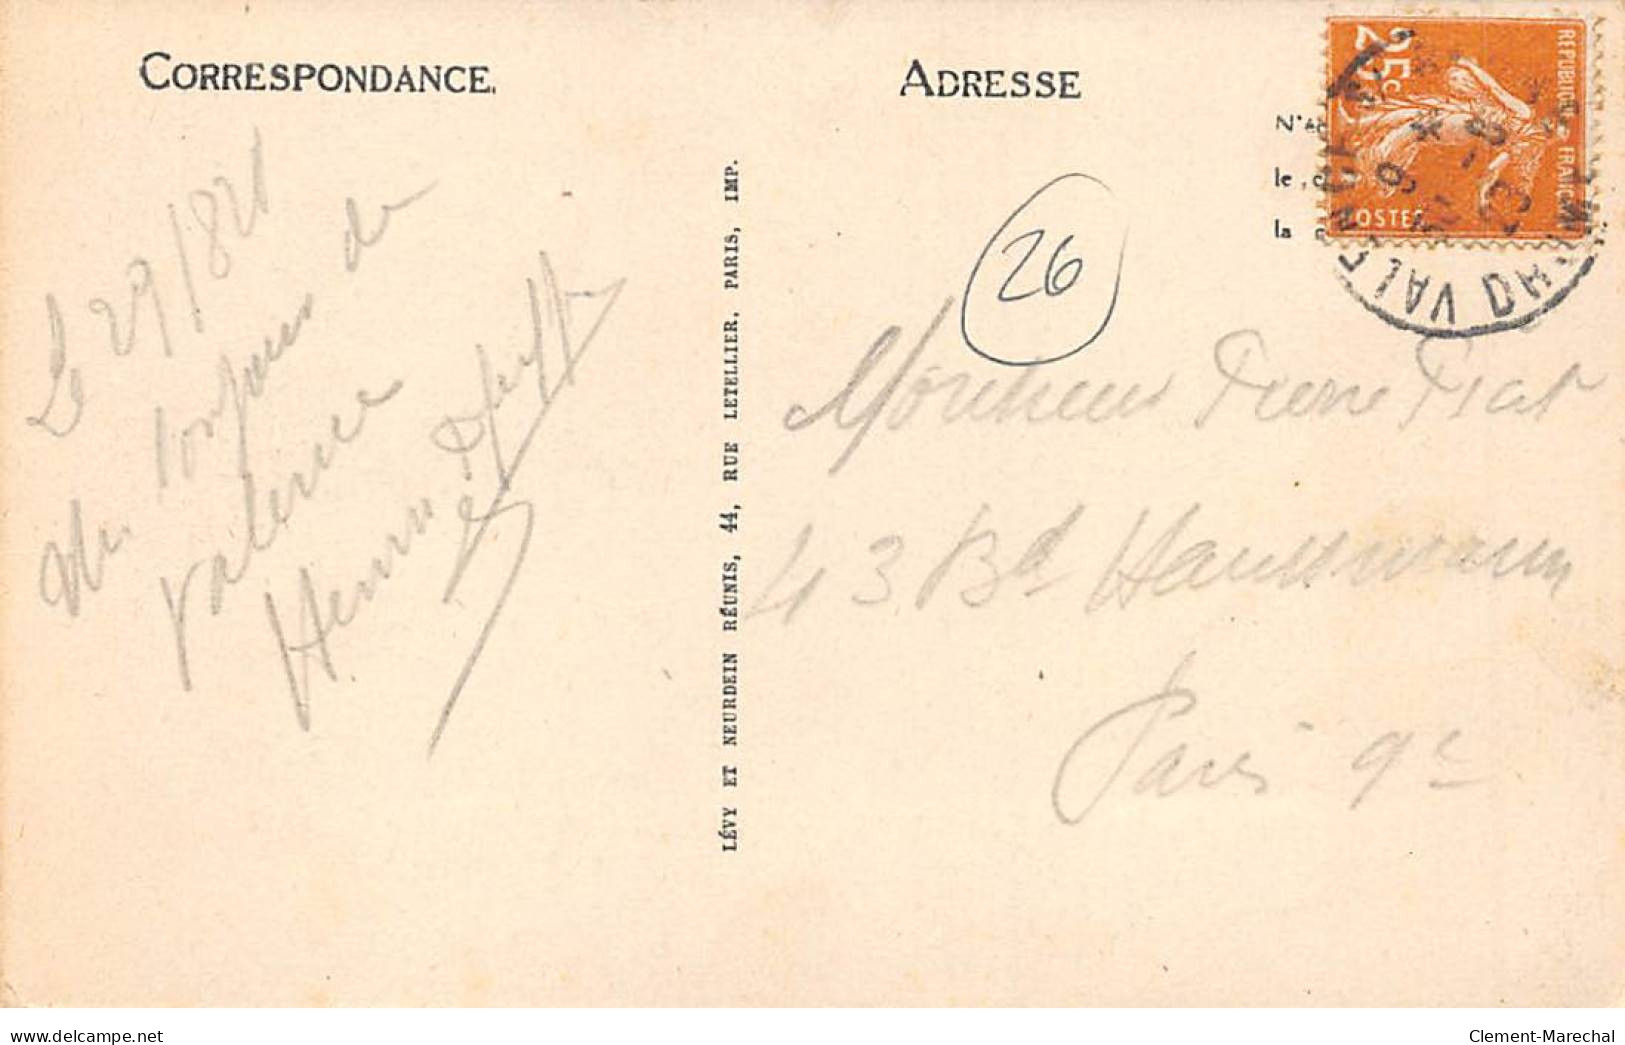 CORRESPONDANCE
ADRESSE
Le 29/8 21
toujours de
Valence
Henri
LÉVY ET NEURDEIN RÉUNIS, 44, RUE LETELLIER, PARIS, IMP.
26
N'
le
la
25c
REPUBLIQUE FRANÇAISE
POSTES
VALENCE
Monsieur Pierre Piat
43 Bd Haussmann
Paris 9e
delcampe.net
Clement-Marechal